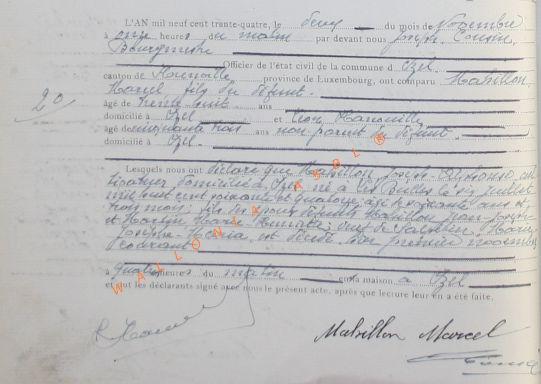 L'AN mil neuf cent trente-quatre, le deux du mois de Novembre
à onze heures du matin par devant nous Joseph Cousin,
Bourgmestre
Officier de l'état civil de la commune d' Izel
canton de Florenville province de Luxembourg, ont comparu Mabillon,
Marcel, fils du défunt.
20
âgé de trente huit ans
domicilié à Izel et Léon
âgé cinquante trois ans non parent du défunt.
domicilié à Izel.
Lesquels nous ont déclaré que Mabillon, Joseph
domicilié à Izel né à Les Bulles le six juillet
mil huit cent soixante et quatorze, âgé de soixante ans et
trois mois; fils de Mabillon Jean Joseph
et Marie veuf de Marie
Joseph Maria est décédé premier novembre
courant
à quatre heures du matin en sa maison à Izel
et ont les déclarants signé avec nous le présent acte, après que lecture leur en a été faite,
WALLONIA ASBL ®
Mabillon Marcel